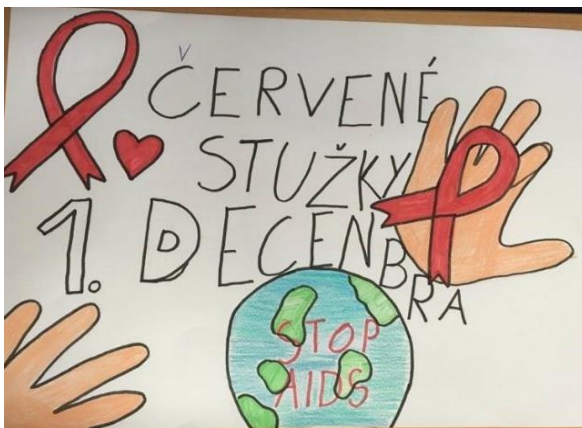 ČERVENÉ
STUŽKY
1. DECENBRA
STOP
AIDS